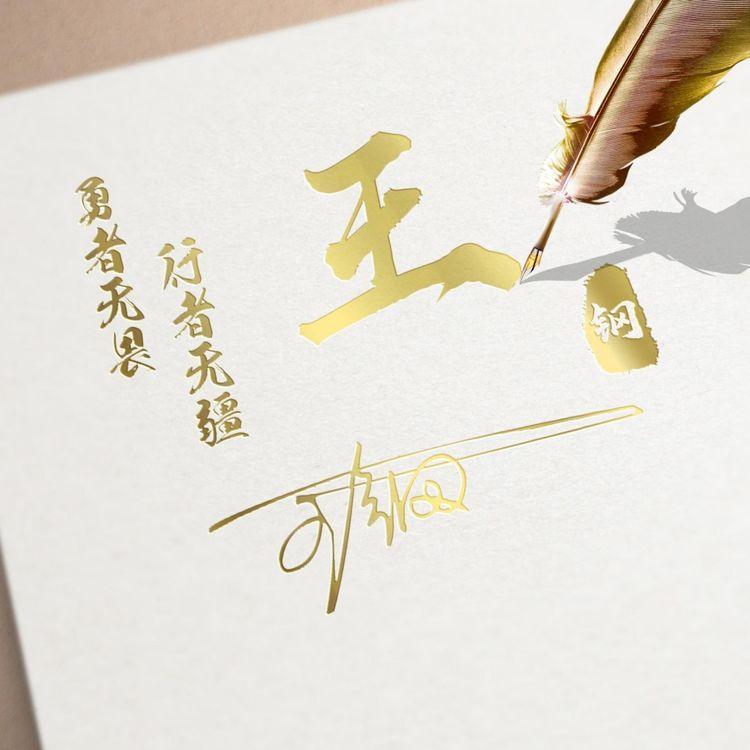 王
钢
行者无疆
勇者无畏